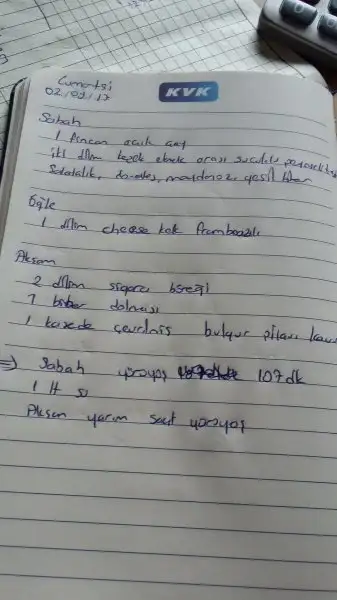 Cumartesi
02/09/17
KVK
Sabah
1 fincan açık çay
iki dilim kepek ekmek arası sucuklu
Salatalık, domates, maydanoz, yeşil biber
Öğle
1 dilim cheese kek frambuazlı
Akşam
2 dilim sigara böreği
7 biber dolması
1 kasede çevrilmiş bulgur pilavı
⇒) Sabah yürüyüş 107 dk
1 lt su
Akşam yarım saat yürüyüş